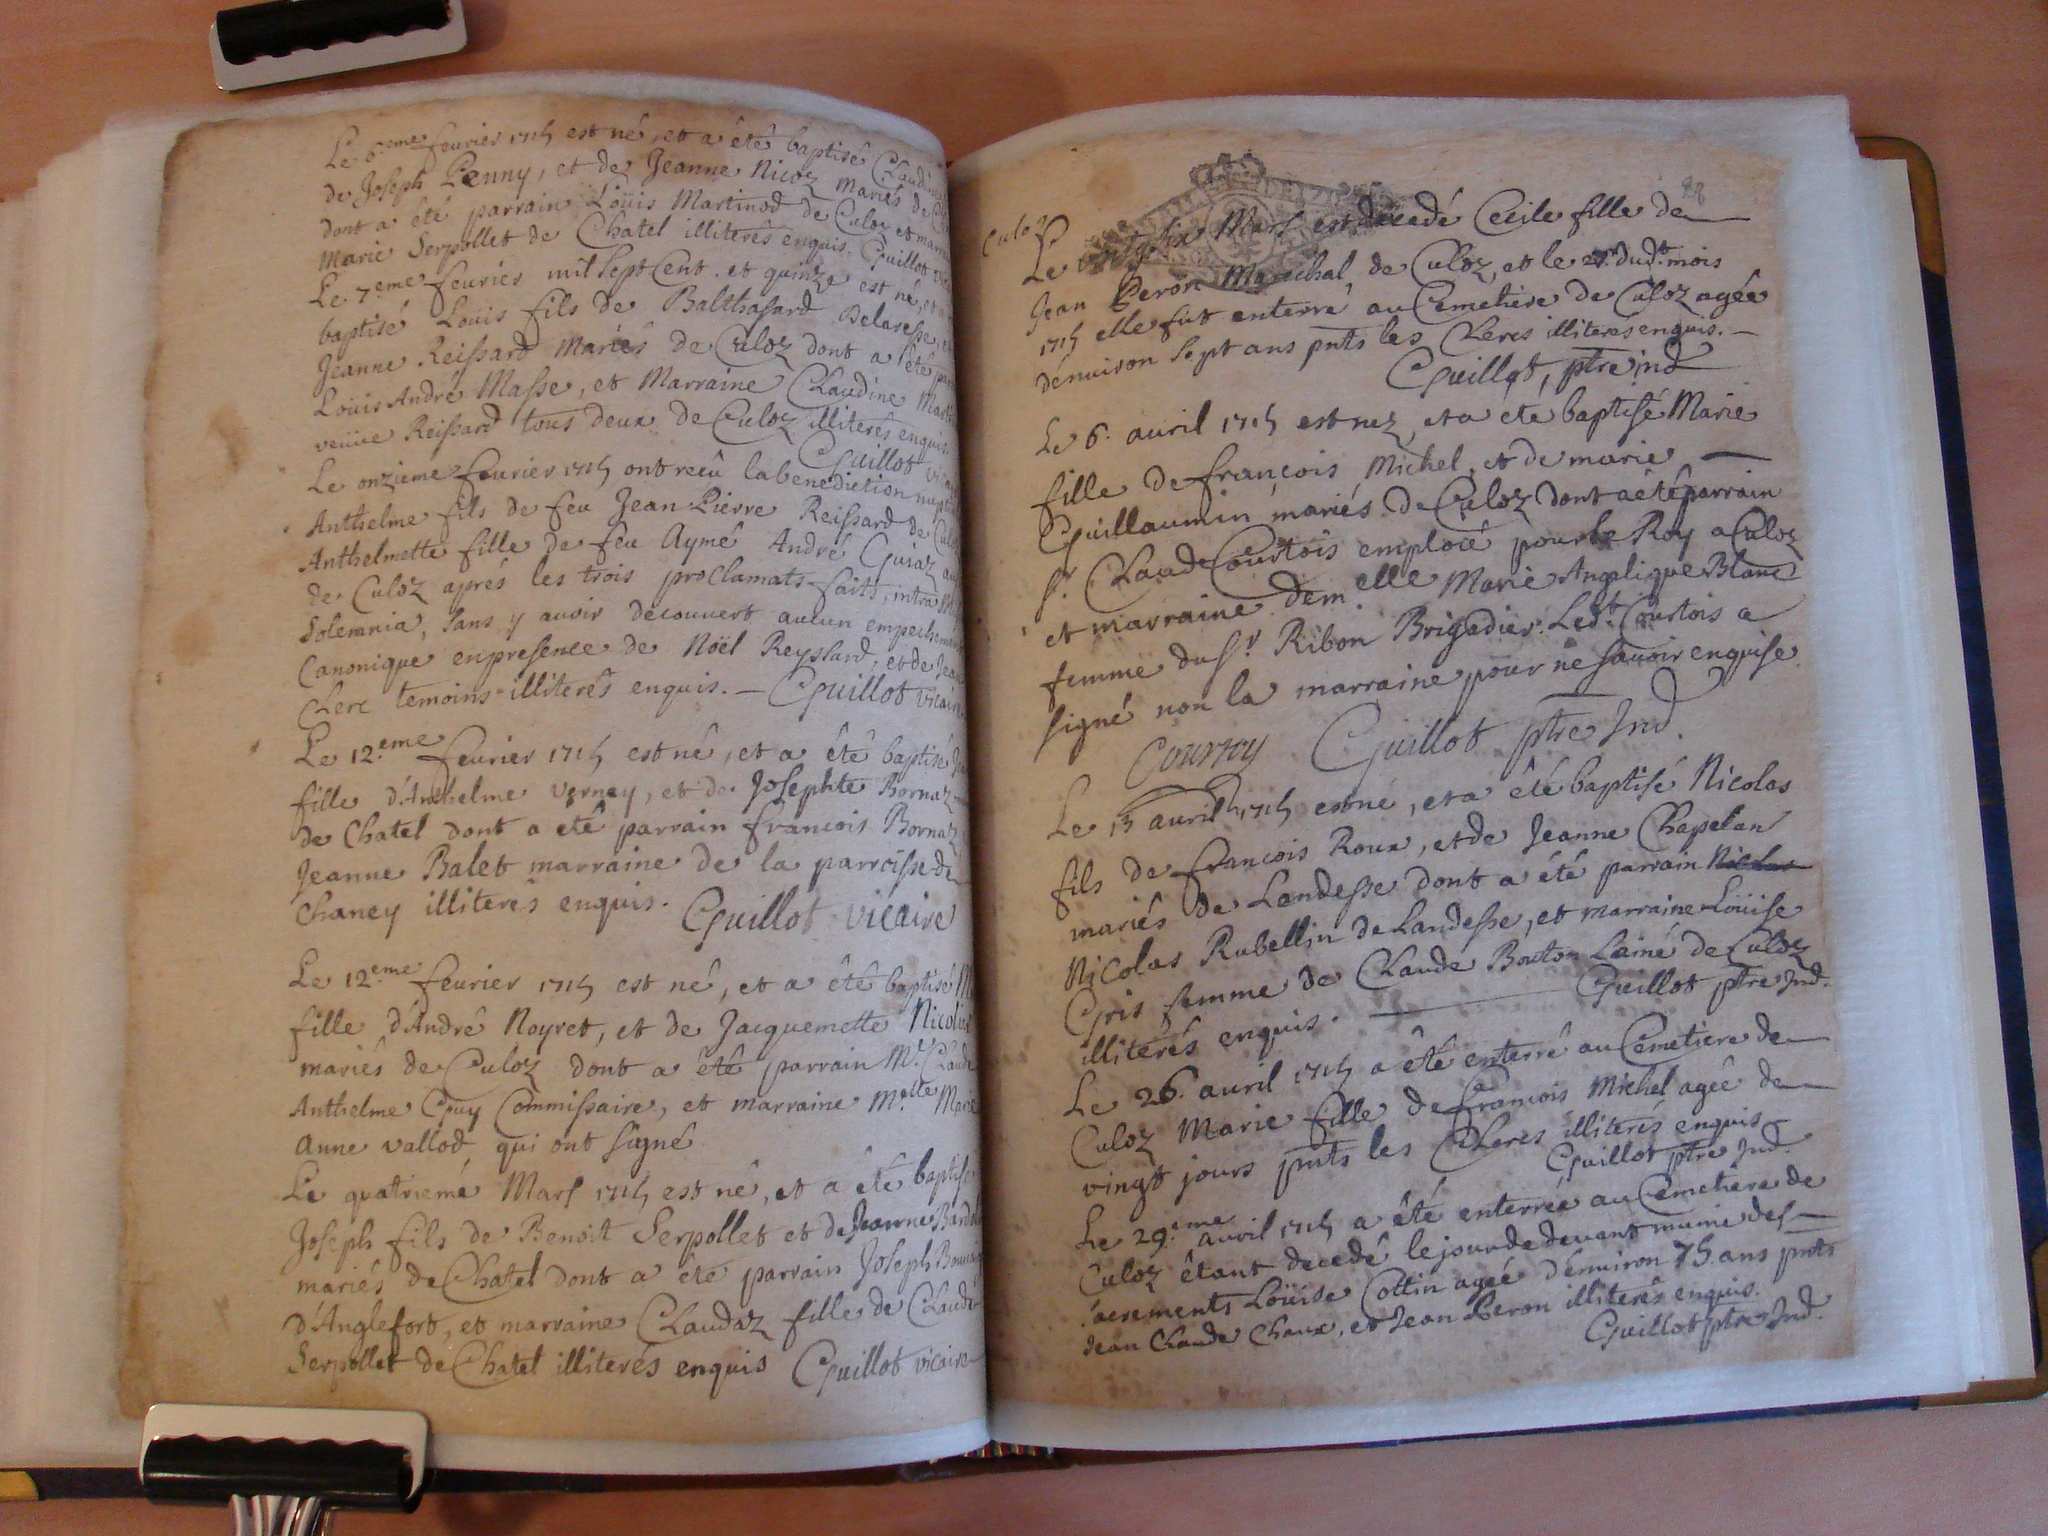 Le 6.eme feurier 1715 est né, et a été baptisé Claudine
de Joseph Penny, et de Jeanne Nicoz mariés de
dont a été parrain Loüis Martinod de Culoz et marraine
Marie Serpollet de Chatel illiterés enquis. Guillot
Le 7.eme feurier mil sept cent et quinze est né, et a
baptisé Louis fils de Balthasard Delaresse, et
Jeanne Reissard Mariés de Culoz dont a été
Loüis André Masse, et Marraine Claudine
veuue Reissard tous deux de Culoz illiterés enquis
Guillot
Le onzieme feurier 1715 ont recû la benediction
Anthelme fils de feu Jean Pierre Reissard de Culoz
Anthelmette fille de feu Aymé André Guiaz
de Culoz aprés les trois proclamats faits, intra
Solemnia, sans y auoir decouvert aucun empechement
Canonique en presence de Noël Reyssard, et de Jean
Clerc temoins illiterés enquis. - Guillot vicaire
Le 12.eme feurier 1715 est né, et a été baptisé
fille d'Anthelme Verney, et de Josephte Bornaz
de Chatel dont a eté parrain francois Bornaz
Jeanne Balet marraine de la parroisse de
Chaney illiterés enquis. Guillot vicaire
Le 12.eme feurier 1715 est né, et a été baptisé
fille d'André Noyret, et de Jacquemette
mariés de Culoz dont a été parrain M.r Claude
Anthelme Guy Commissaire, et marraine M.elle Marie
Anne vallod, qui ont signé
Le quatriemé Mars 1715 est né, et a été baptisé
Joseph fils de Benoit Serpollet et de Jeanne
mariés de Chatel dont a été parrain Joseph
d'Anglefort, et marraine Claudaz fille de Claude
Serpollet de Chatel illiterés enquis Guillot vicaire
Culoz
Le vingt six Mars est décedé Cecile fille de
Jean Peron Marechal de Culoz, et le 27. dud.t mois
1715 elle fut enterré au Cemetiere de Culoz agée
dénuiron sept ans pnts les Clercs illiterés enquis. -
Guillot, ptre ind
Le 6. auril 1715 est nez, et a été baptisé Marie
fille de françois Michel, et de marie
Guillaumin mariés de Culoz dont a été parrain
s.r Claude Courtois emploié pour le Roy a Culoz
et marraine dem.elle Marie Angelique Blanc
femme du s.r Ribon Brigadier. Led.t Courtois a
signé non la marraine pour ne sauoir enquise
Guillot ptre Ind.
Le 13 auril 1715 est né, et a été baptisé Nicolas
fils de francois Roux, et de Jeanne Chapelan
mariés de Landesse dont a été parrain Nicolas
Nicolas Rubellin de Landesse, et marraine Loüise
Gris femme de Claude Bouton Lainé de Culoz
illiterés enquis. Guillot ptre Ind.
Le 26. auril 1715 a été enterré au Cemetiere de
Culoz Marie fille de francois Michel agée de
vingt jours pnts les Clercs illiterés enquis
Guillot ptre Ind.
Le 29.eme auril 1715 a été enterrée au Cemetiere de
Culoz étant decedé le jour de devant munie des
sacrements Loüise Cottin agée d'énuiron 75. ans pnts
Jean Claude Chaux, et Jean Peron illiterés enquis.
Guillot ptre Ind.